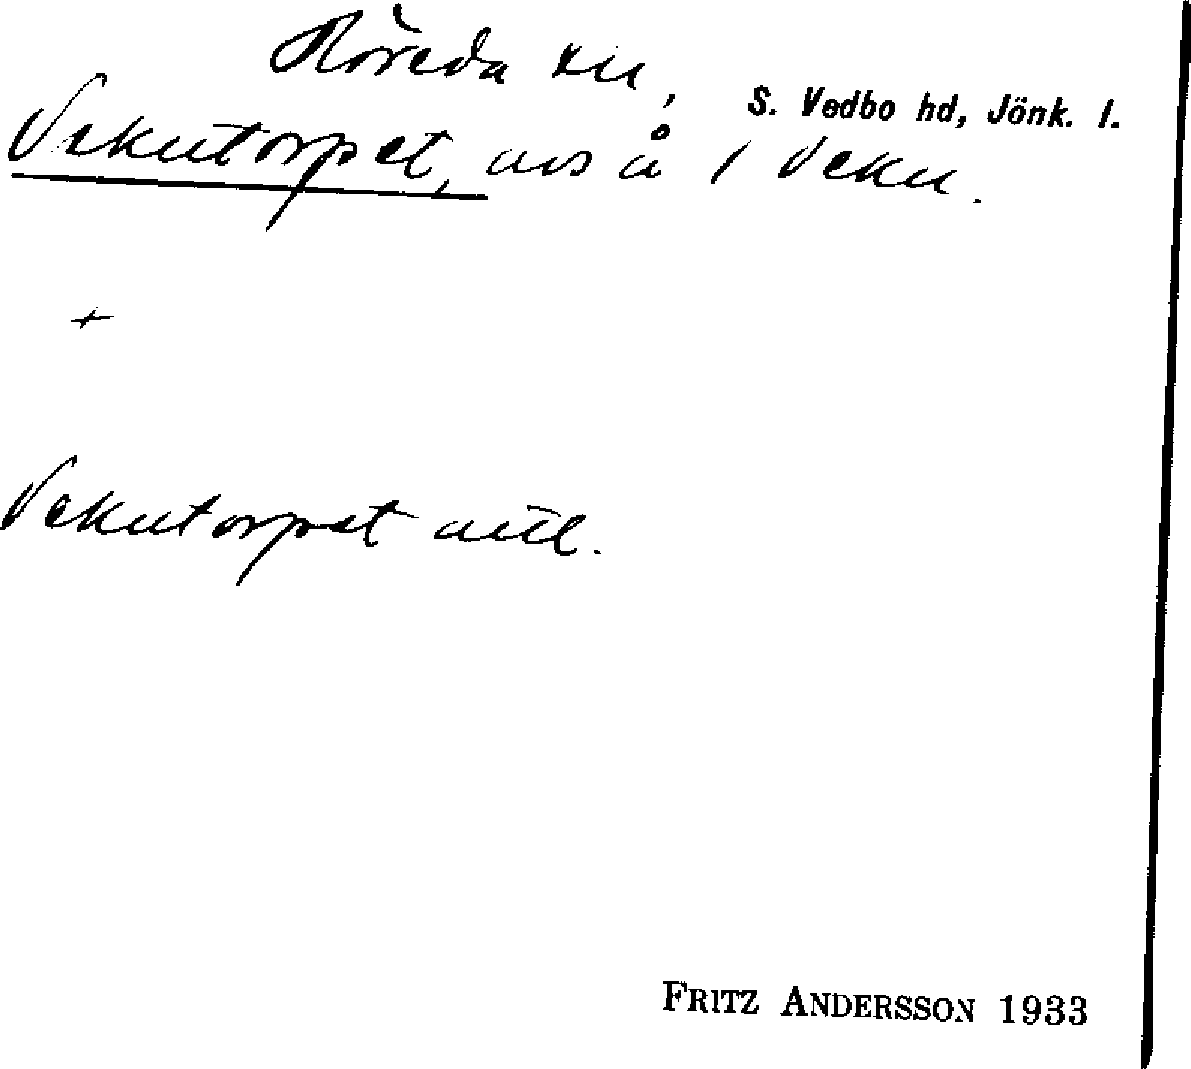 Höreda sn, S. Vedbo hd, Jönk. l.
Vekutorpet, avs å 1 Veku.
+
Vekutorpet uttl.
FRITZ ANDERSSON 1933